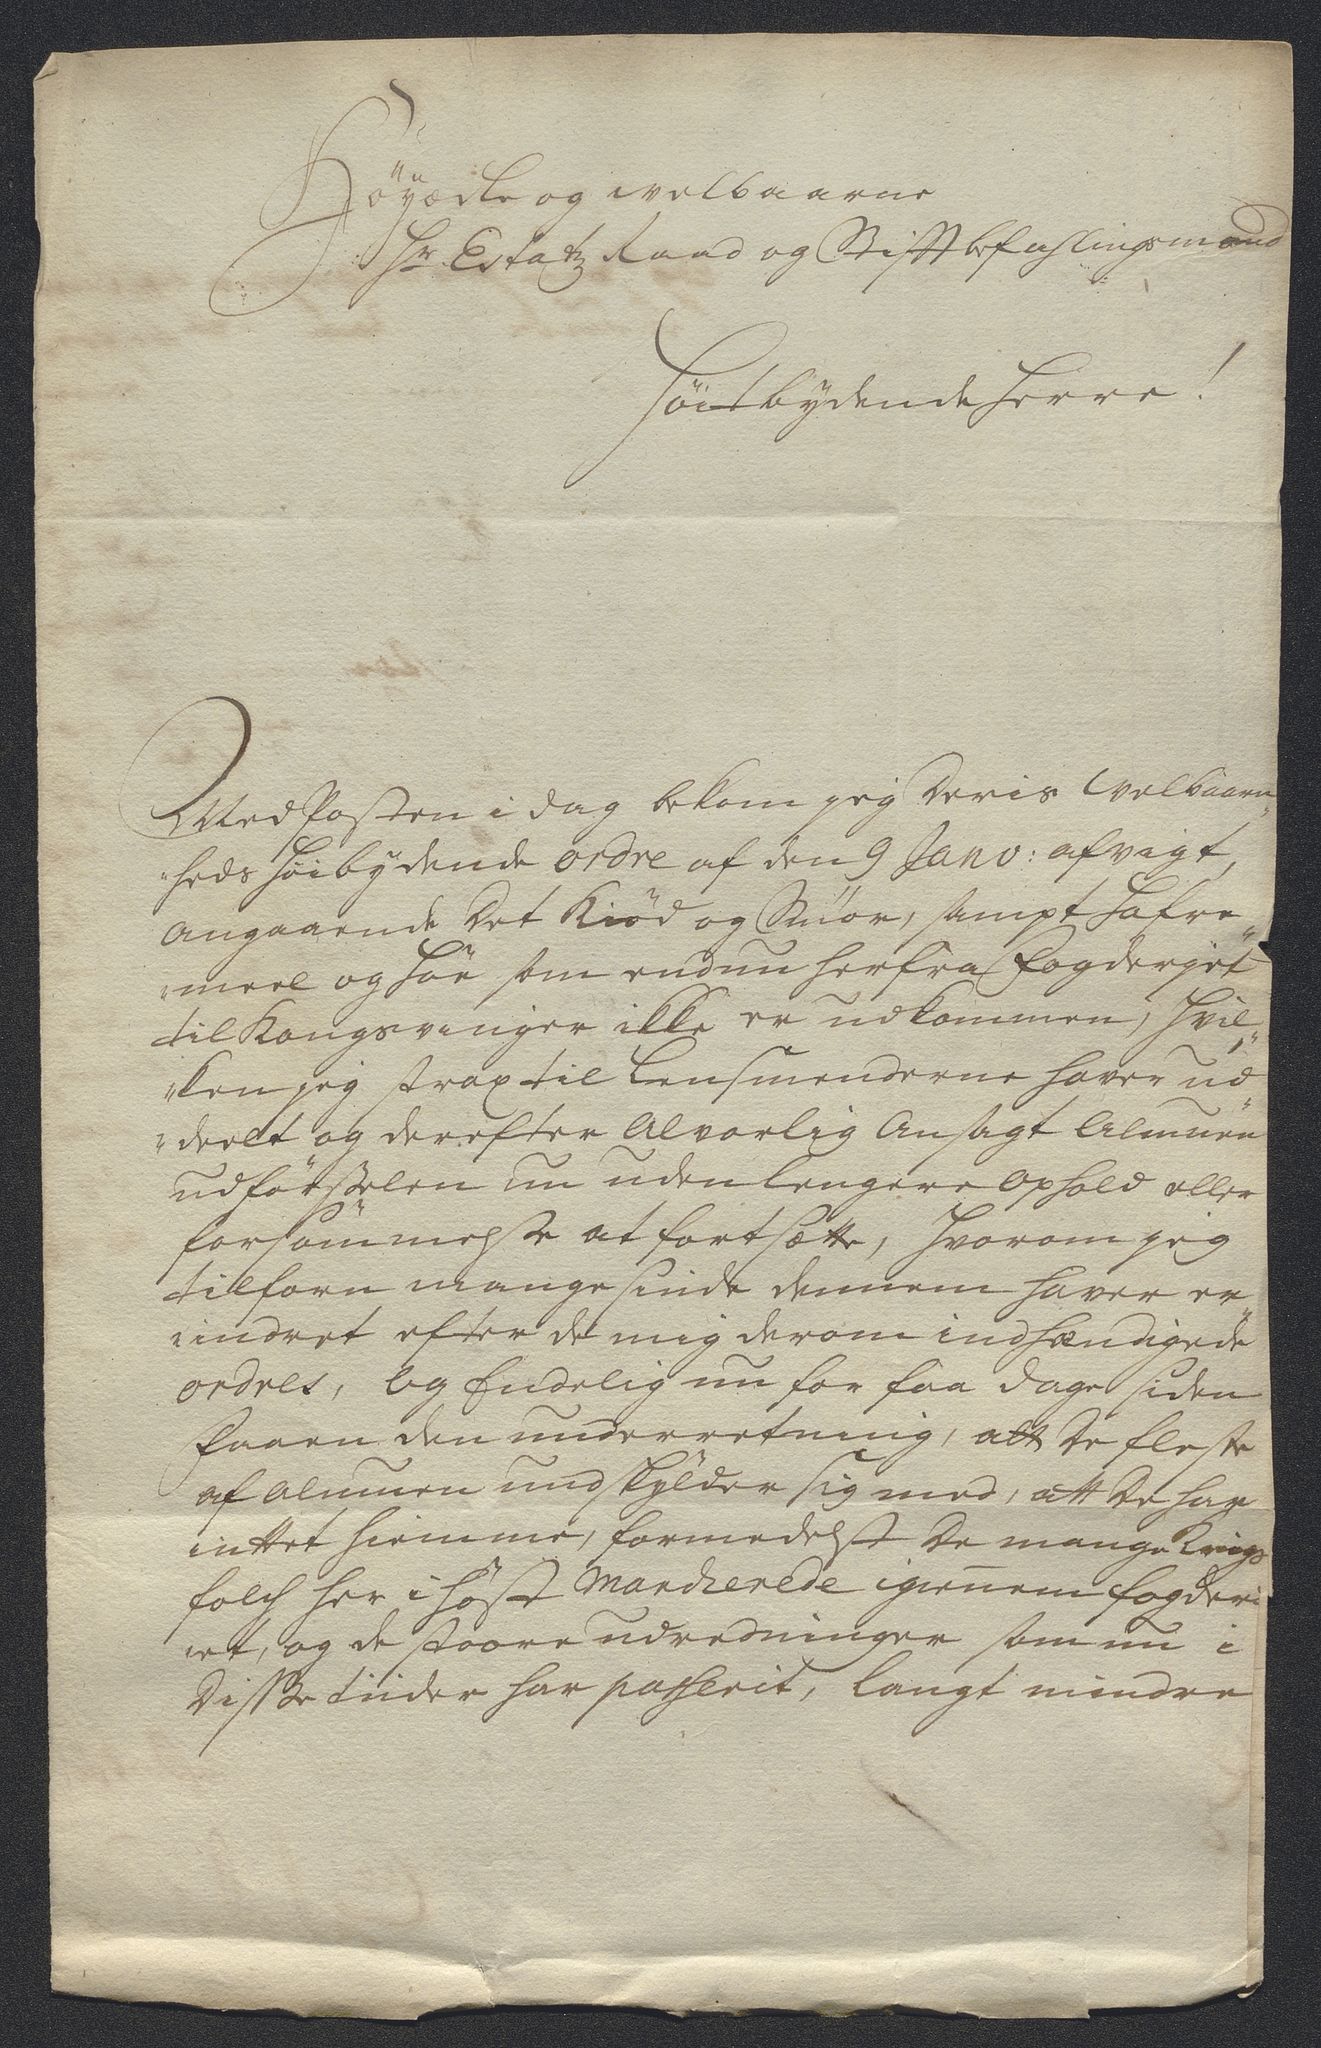 Höyædle og welbaarne
Hr Estatz Raad og Stiftbefahlingsmand
Höitbydende Herre!
Med Posten i dag bekom jeg Deris welbaarn-
heds höibydende ordre af den 9 Janv: afvigt,
angaaende det Kiöd og Smör, sampt Hafre
meel og höe som endnu herfra Fogderjet
til Kongsvinger ikke er udkommen, hvil-
ken jeg strax til Lensmenderne haver ud
deelt og derefter Alvorlig Ansagt Almuen
udförsselen nu uden lengere Ophold eller
forsömmelse at fortsætte, hvorom jeg
tilforn mange sinde dennem haver er
indret efter de mig derom indhændigede
ordres, og Endelig nu for faa dage siden
Faaen den underretning, att de fleste
af almuen undskylder sig med, att de har
inttet hiemme, formedelst de mange Krigs
folch her i höst Marcherede igiennem fogderi
et, og de stoore udredninger som nu i
disse tiider har passerit, langt mindre